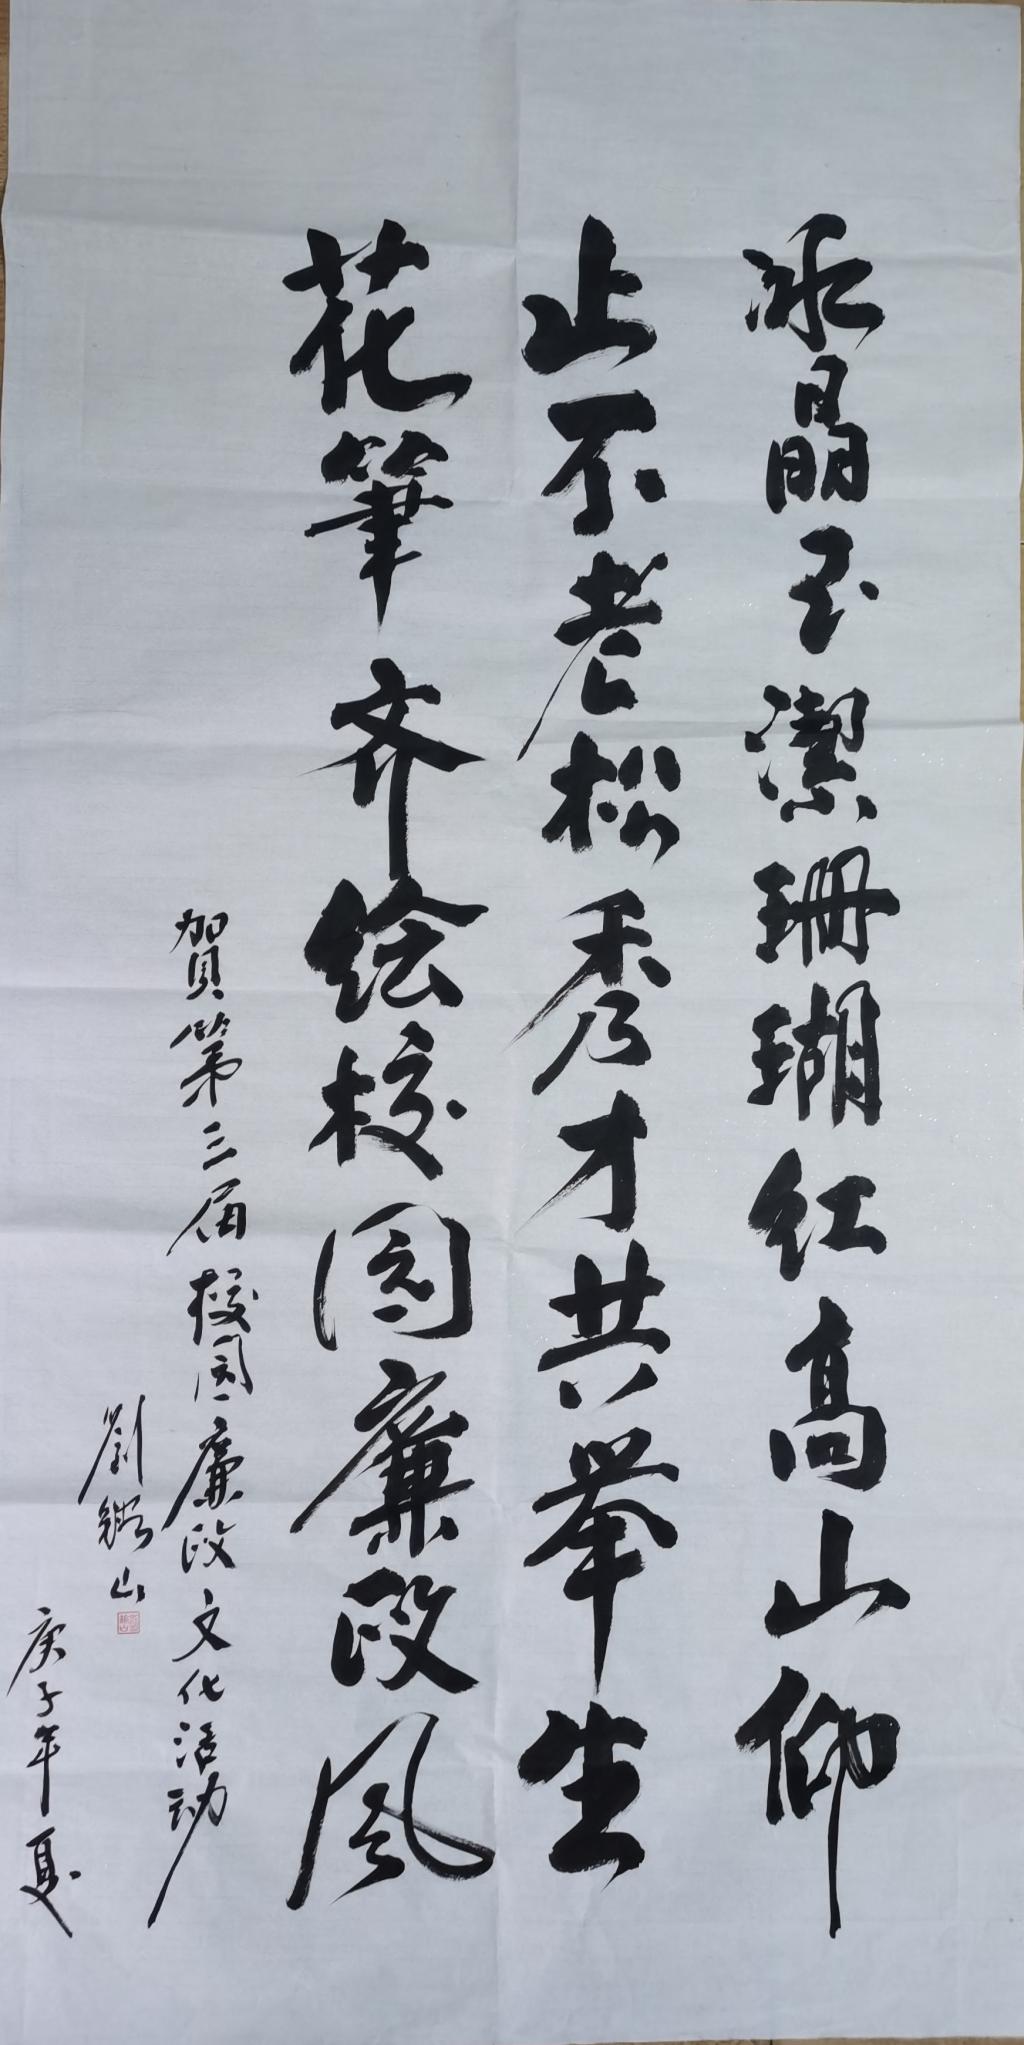 冰晶玉潔珊瑚红高山仰
止不老松秀才共举生
花筆齐绘校园廉政风
賀第三届校园廉政文化活动
劉山
庚子年夏